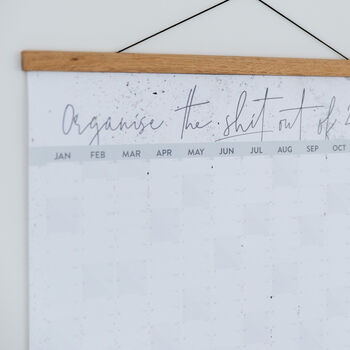 Organise the shit out of 2
JAN FEB MAR APR MAY JUN JUL AUG SEP OCT